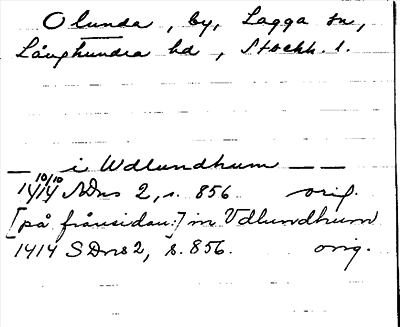 Olunda, by, Lagga sn,
Långhundra hd, Stockh. l.
— i Wdlundhum — —
10/10
1414 SDns 2, s. 856. orig.
[på frånsidan:] in Vdlundhum
1414 SDns 2, s. 856. orig.